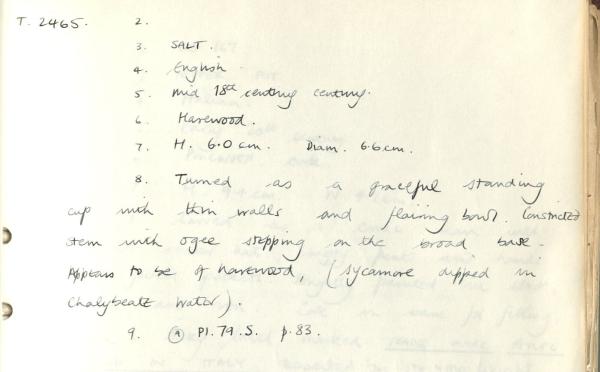 T. 2465. 2.
3. SALT.
4. English
5. mid 18th century century.
6. Harewood.
7. H. 6.0 cm. Diam. 6.6 cm.
8. Turned as a graceful standing
cup with thin walls and flairing bowl. Constricted
stem with ogee stepping on the broad base.
Appears to be of harewood, (sycamore dipped in
Chalybeate water).
9. (a) Pl. 79. S. p. 83.